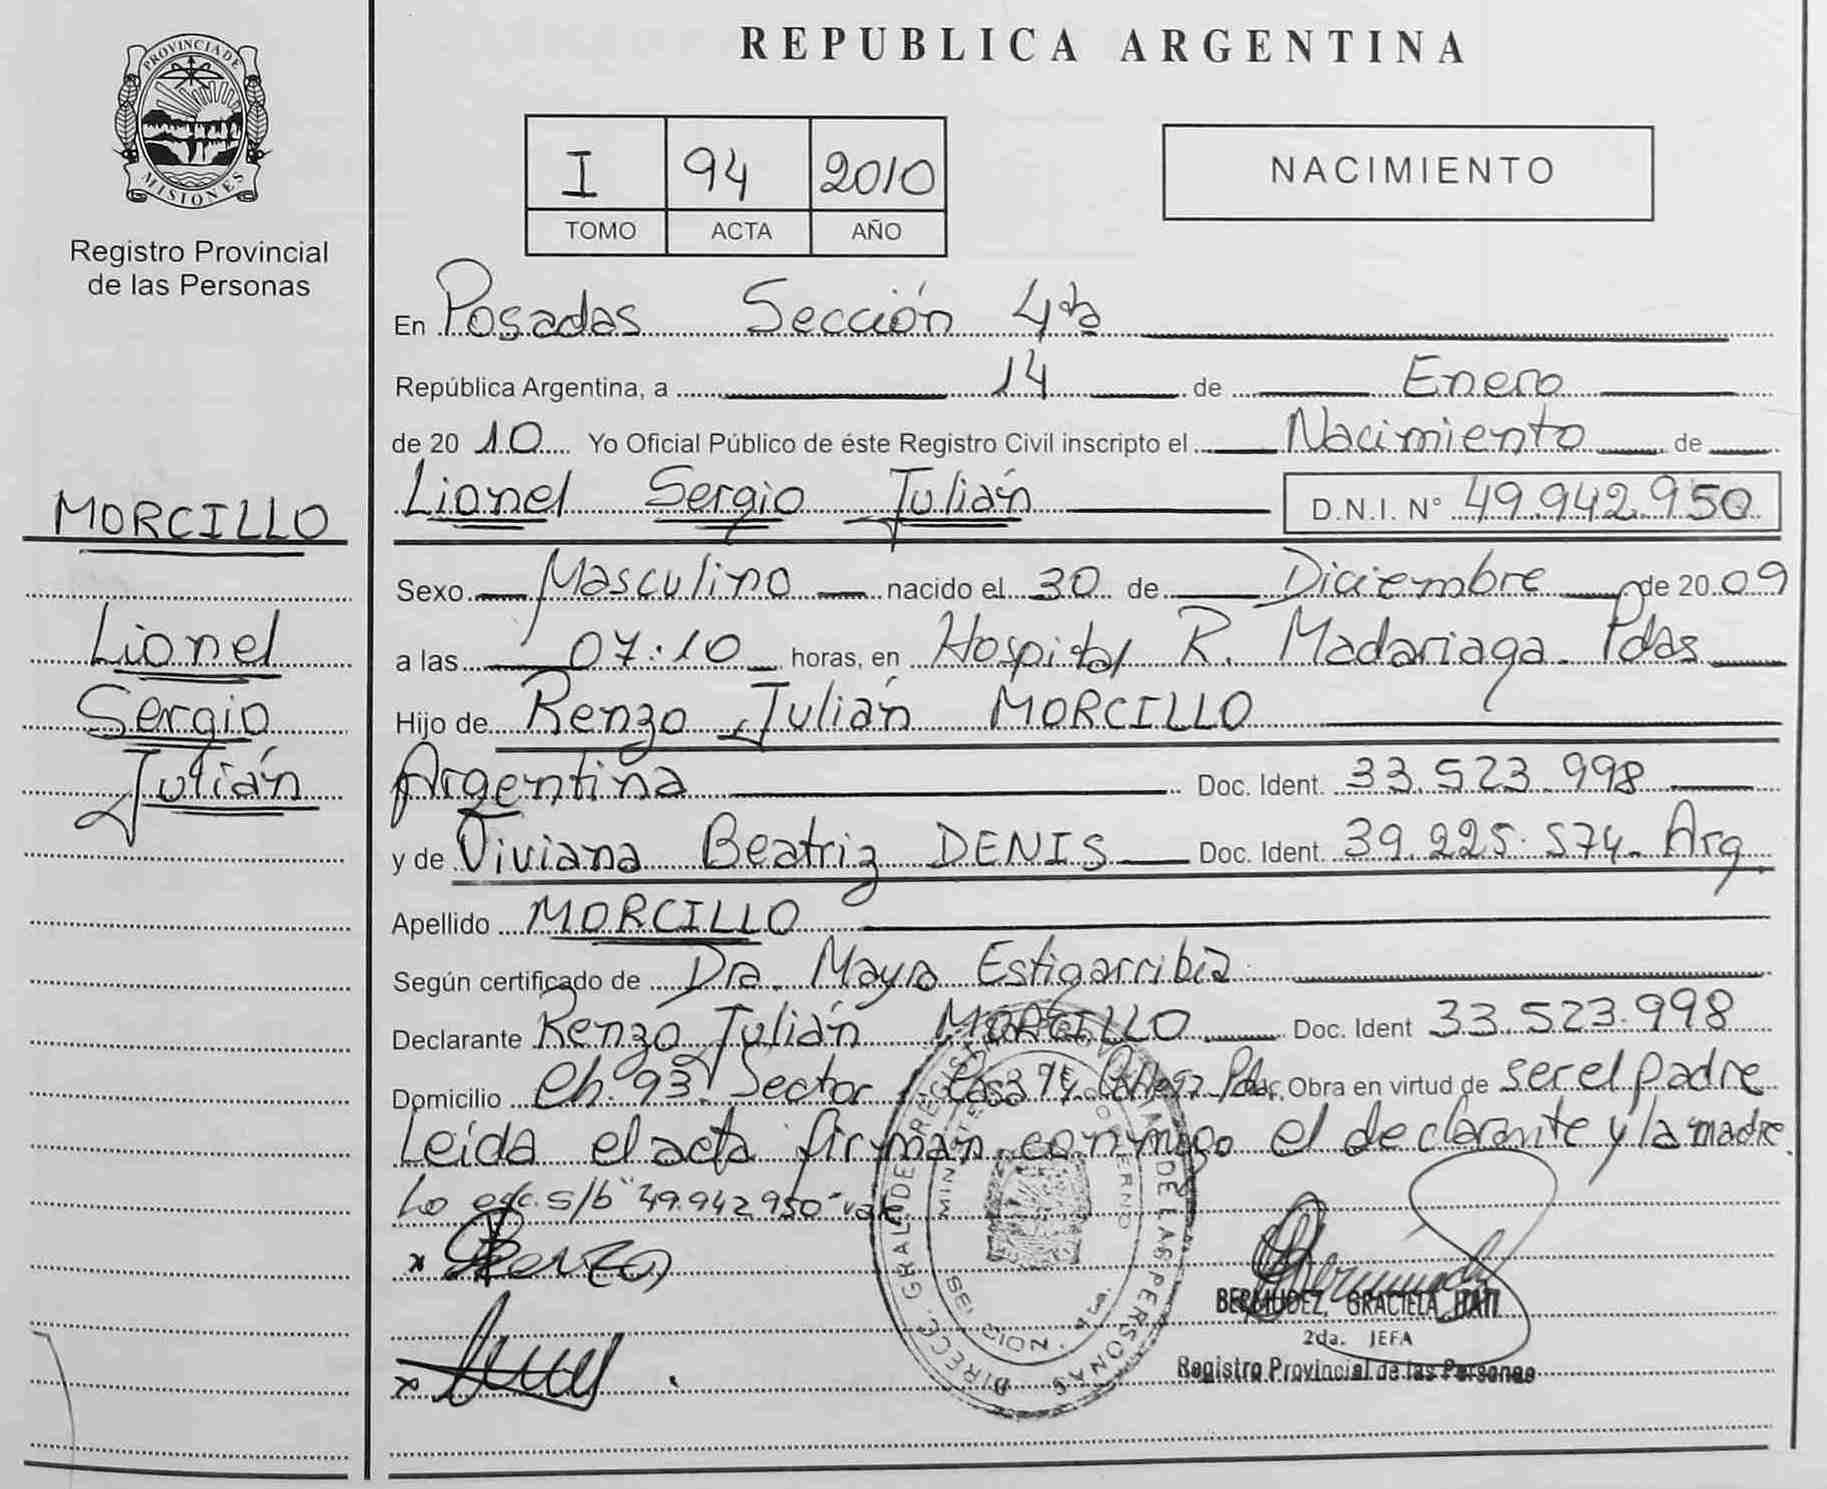 REPUBLICA ARGENTINA
PROVINCIA DE
MISIONES
Registro Provincial
de las Personas
I 94 2010
TOMO ACTA AÑO
NACIMIENTO
MORCILLO
Lionel
Sergio
Julián
En Posadas Sección 4ta
República Argentina, a 14 de Enero
de 20 10 Yo Oficial Público de éste Registro Civil inscripto el Nacimiento de
Lionel Sergio Julián D.N.I. N° 49.942.950
Sexo Masculino nacido el 30 de Diciembre de 20 09
a las 07:10 horas, en Hospital R. Madariaga Pdas
Hijo de Renzo Julián MORCILLO
Argentina Doc. Ident. 33.523.998
y de Viviana Beatriz DENIS Doc. Ident. 39.225.574- Arg.
Apellido MORCILLO
Según certificado de Dra. Mayra Estigarribia
Declarante Renzo Julián MORCILLO Doc. Ident 33.523.998
Domicilio Ch. 93. Sector Casa Pdas. Obra en virtud de ser el padre
Leída el acta firman conmigo el declarante y la madre.
Lo s/b "49.942 950" vale
x Renzo
x
DIRECC. GRAL. DE REGISTRO DE LAS PERSONAS
MINISTERIO DE GOBIERNO
SECCION 4ta.
BERMUDEZ, GRACIELA ITATI
2da. JEFA
Registro Provincial de las Personas